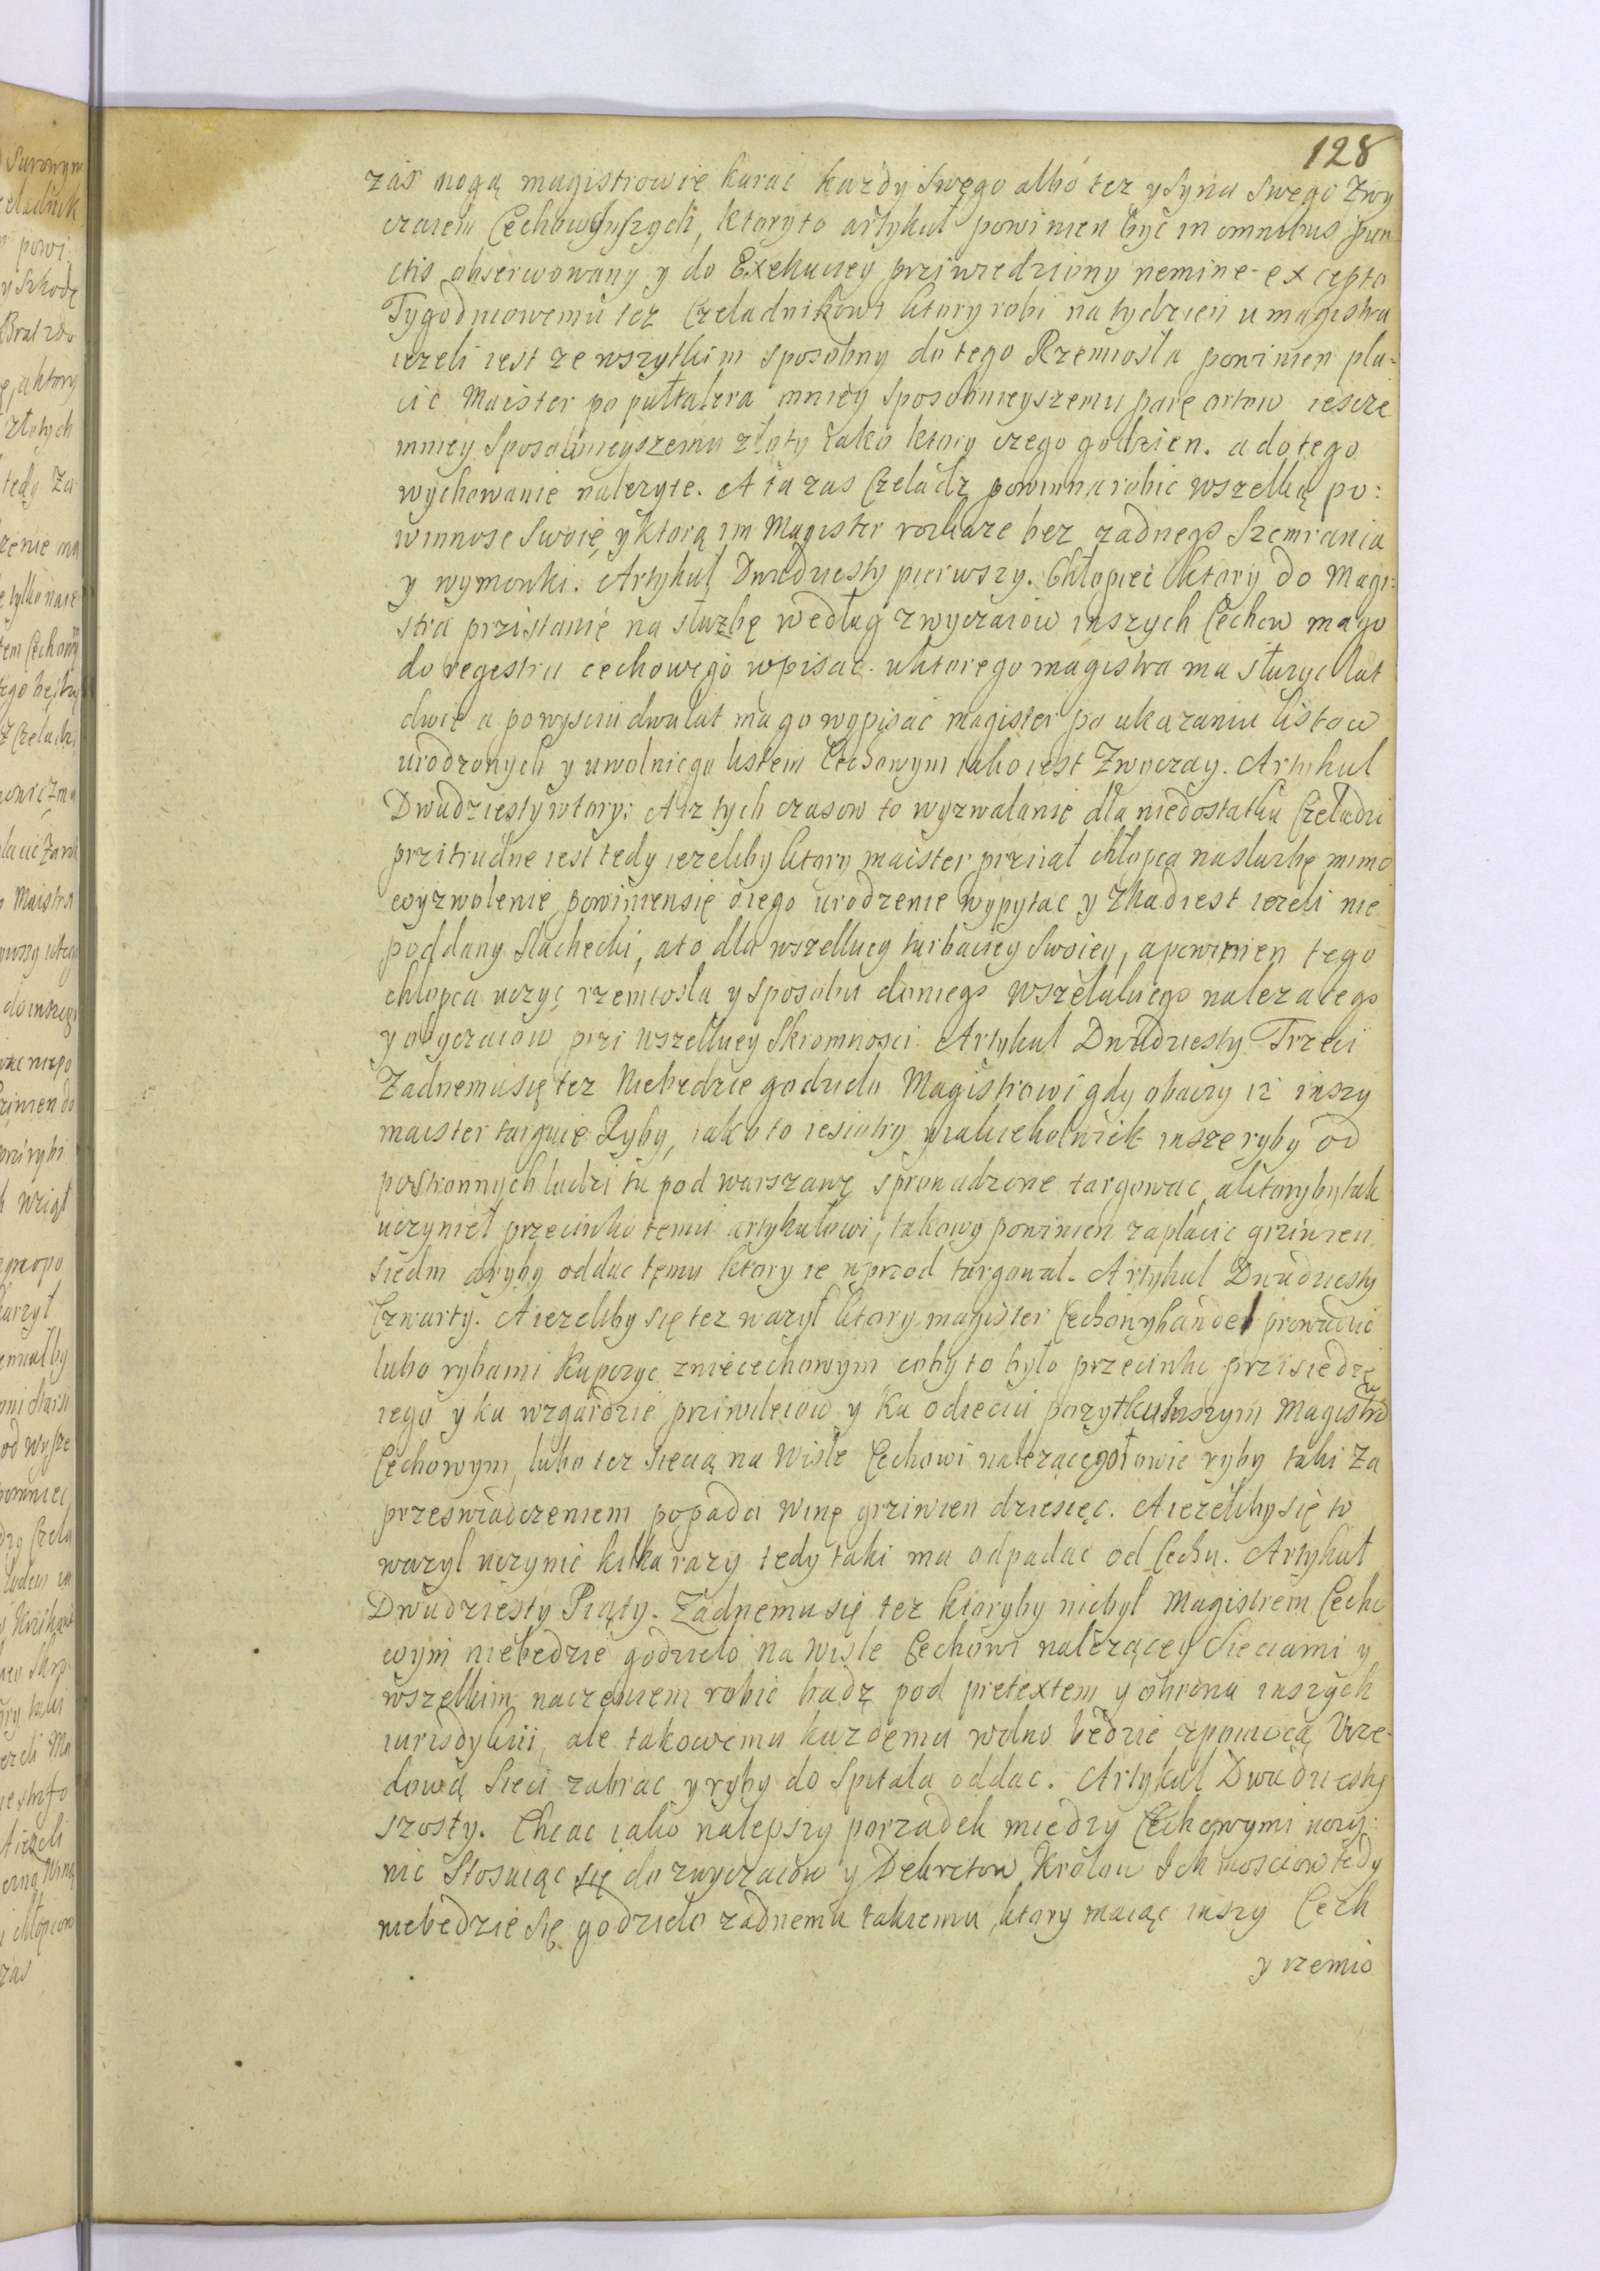 128
zas mogą magistrowie karac kazdy swego albo tez y syna swego Zwy
czaiem Cechow Inszych, ktoryto artykuł powinien być in omnibus pun
ctis obserwowany y do Exekucyey prziwiedziony nemine excepto
Tygodniowemu tez Czeladnikowi ktory robi na tydzień u magistra
iezeli iest ze wszytkim sposobny do tego Rzemiosła powinien pła-
cic Maister po pułtalera mniey sposobnieyszemu parę ortow iescze
mniey sposobnieyszemu złoty iako ktory czego godzien. a do tego
wychowanie nalezyte. A ta zas Czeladz powinna robic wszelką po:
winnosc swoię y ktorą im Magister rozkaze bez zadnego szemrania
y wymowki. Artykuł Dwudziesty pierwszy. Chłopiec ktory do Magi:
stra przistanię na słuzbę według zwyczaiow inszych Cechow ma go
do regestru cechowego wpisac. u ktorego magistra ma słuzyc lat
dwie a powysciu dwu lat ma go wypisać magister po ukazaniu listow
urodzonych y uwolnic go listem Cechowym iako iest Zwyczay. Artykuł
Dwudziesty wtory: A iz tych czasow to wyzwalanie dla niedostatku Czeladzi
przitrudne iest tedy iezeliby ktory maister prziiał chłopca na słuzbę mimo
wyzwolenie powiniensię o iego urodzenie wypytac y zkad iest iezeli nie
poddany slachecki, a to dla wszelkiey turbacyey swoiey, a powinien tego
chłopca uczyć rzemiosła y sposobu do niego wszelakiego nalezacego
y obyczaiow przi wszelkiey skromnosci. Artykuł Dwudziesty Trzeci
Zadnemu się tez niebedzie godzieło Magistrowi gdy obaczy iz inszy
maister targuie Ryby, iako to iesiotry y iakiekolwiek insze ryby od
postronnych ludzi tu pod warszawę sprowadzone targowac, a ktoryby tak
uczynieł przeciwko temu artykułowi, takowy powinien zapłacic grziwien
siedm a ryby oddac temu ktory ie wprzod targował. Artykuł Dwudziesty
Czwarty. A iezeliby się tez wazył ktory magister Cechowy handel prowadzic
lubo rybami kupczyc z niecechowym coby to było przeciwko przisiedze
iego y ku wzgardzie priwileiow y ku odieciu pozytku Inszym Magistro
Cechowym, lubo tez siecią na Wisle Cechowi nalezącego łowic ryby taki za
przeswiadczeniem popada winę grziwien dziesięc. A iezeliby się to
wazył uczynic kilka razy tedy taki ma odpadac od Cechu. Artykuł
Dwudziesty Piąty. Zadnemu się tez ktoryby niebył Magistrem Cecho
wym niebedzie godzieło na Wisle Cechowi nalezącey Sieciami y
wszelkim naczeniem robic badz pod pretextem y obrona inszych
iurisdykcii, ale takowemu kazdemu wolno bedzie z pomocą Urze-
dową sieci zabrac y ryby do spitala oddac. Artykuł Dwudziesty
szosty. Chcac iako nalepszy porzadek miedzy Cechowymi uczy:
nic stosuiąc się do zwyczaiow y Dekretow Krolow Ich mosciow tedy
niebedzie się godzieło zadnemu takiemu, ktory maiąc inszy Cech
y rzemio